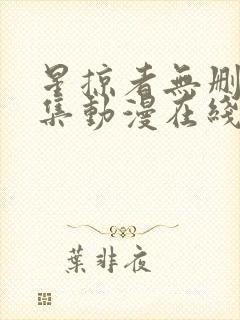 星掠者無刪
集動漫在綫
葉非夜